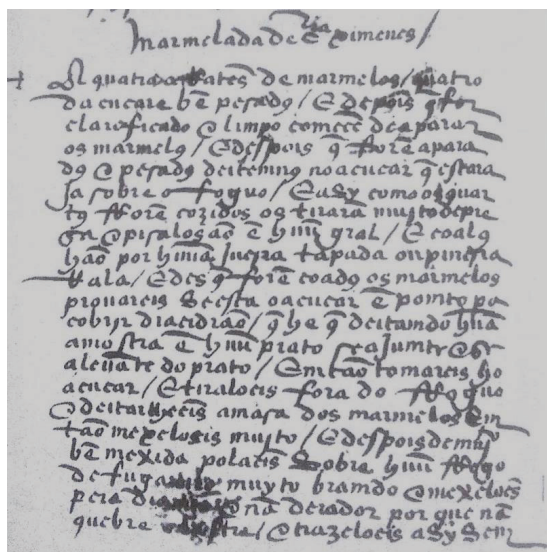 marmelada de Ca ximenes /
A quatro aRates de marmelos / quatro
daçucare bẽ pesados / E depois q̃ for
clareficado E limpo comecẽ de aparar
os marmelos / E despois q̃ fforẽ apara
dos E pesados deitemno no açucar q̃ estara
ja sobre o foguo / E asy como os quar
tos fforẽ cozidos os tirarã muito depre
sa E pisalosão ẽ hũu gral / E coalos
hão por hũua Jueira tapada ou pineira
Rala / E des q̃ forẽ coados os marmelos
provareis se esta o açucar ẽ pomto pa
cobrir diacidrão / q̃ he q̃ deitamdo hũa
amostra ẽ hũu prato se ajumte E se
alevãte do prato / Emtão tomareis ho
açucar / E tiraloeis fora do ffoguo
E deitarlheeis amasa dos marmelos Em
tão mexeloeis muito / E despois de muito
bẽ mexida polaeis sobre hũu ffogo
de fugareiro muyto bramdo E mexeloeis
pera nã derador por que nã
quebre / E trazeloeis asy sem